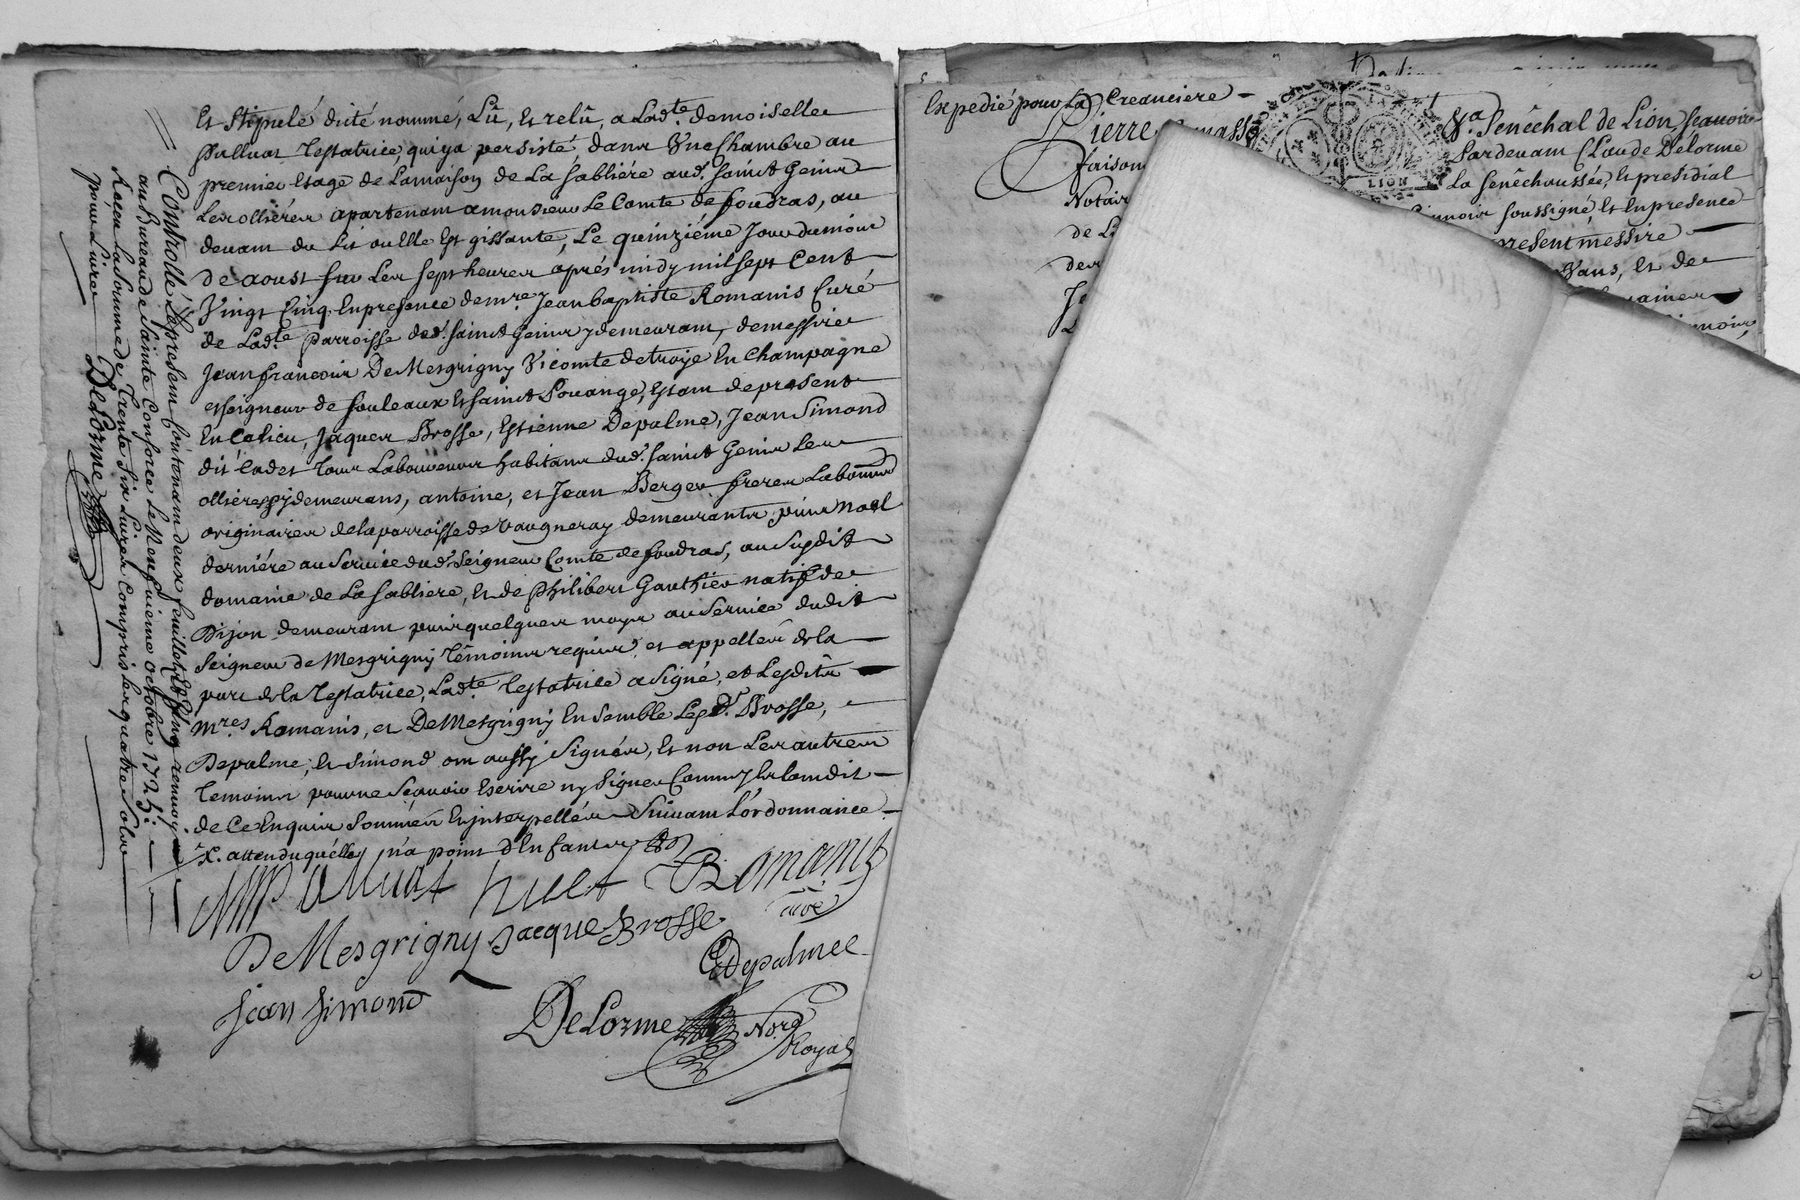 Et Stipulé dicté nommé, Lû, Et relû, a Lad.te demoiselle
Pulluat Testatrice, qui ÿ a persisté dans Vne Chambre au
premier Etage de Lamaison de La Sabliére aud.t Sainct Genis
Les ollieres apartenam amonsieur Le Comte de foudras, au
deuam du Lit ou Elle Est gissante, Le quinziéme Jour dumois
de aoust sur Les sept heures aprés midy mil sept Cent
Vingt Cinq En presence de m.re Jean baptiste Romanis Curé
de Lad.te Parroisse dud.t Sainct Genis y demeuram, de messire
Jean francois De Mesgrigny Vicomte de troye En Champagne
et seigneur de souleaux Et sainct Pouange, Estam depresent
En Ce lieu, Jaques Brosse, Estienne Depalme, Jean Simond
dit Cadet Tous Laboureurs habitans dud.t Sainct Genis Les
ollieres y demeurans, antoine, et Jean Berger freres Laboureurs
originaires de la parroisse de Vaugneray demeurants puis Noel
derniére au Seruice dud.t Seigneur Comte de foudras, au Susdit
domaine de La Sabliere, Et de Philibert Gauthier natif de
Dijon demeuram puis quelques moys au Seruice dudit
Seigneur de Mesgrigny Témoins requis, et appellés de la
part de la Testatrice, Lad.te Testatrice a Signé, et Lesdits
M.res Romanis, et De Mesgrigny Ensemble Lesd.ts Brosse,
Depalme, Et Simond ont aussy Signés, Et non Les autres
Temoins pour ne Sçauoir Escrire ny Signer Comme Ils Lom dit
de Ce Enquis Sommés Et jnterpellés Suiuam L'ordonnance
X. attendu quélle n'a point d'Enfants
Pulluat huet Romanis
curé
De Mesgrigny Jacque Brosse
E Depalme
Jean Simond
DeLorme No.re
Royal
Controllé Le presen Contenam deux feuillets Et Cinq renuois
au Bureau de Sainte Consorce Le Neufuieme octobre 1725:
Receu La Somme de Trente Six Liures Compris Les quatre Sols
pour Liures DeLorme
Expedié pour La Creanciere
Pierre
faisom
Notair
de L
des
LION
Senéchal de Lion, Scauoir
Pardeuam Claude Delorme
La Senéchaussée, Et presidial
soussigné, Et En presence
present messire
Vans, Et de